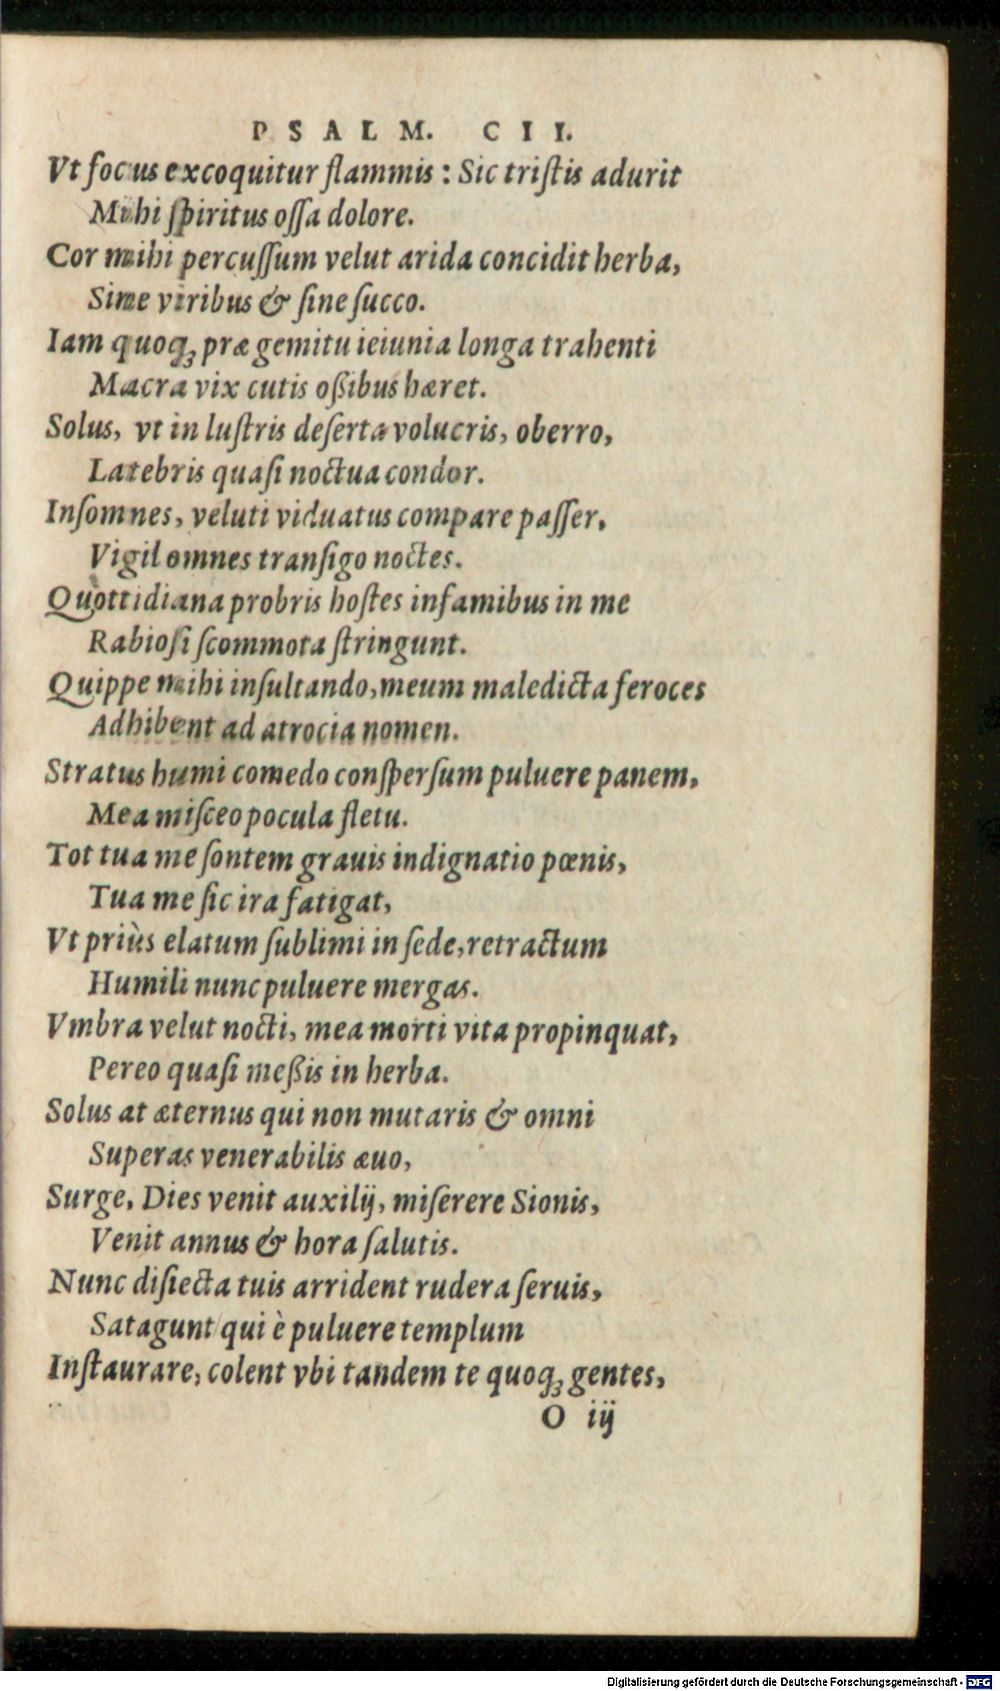 PSALM. CII.
Vt focus excoquitur flammis : Sic triſtis adurit
Mihi ſpiritus oſſa dolore.
Cor mihi percuſſum velut arida concidit herba,
Sine viribus & ſine ſucco.
Iam quoqꝫ præ gemitu ieiunia longa trahenti
Macra vix cutis oßibus hæret.
Solus, vt in luſtris deſerta volucris, oberro,
Latebris quaſi noctua condor.
Inſomnes, veluti viduatus compare paſſer,
Vigil omnes tranſigo noctes.
Quottidiana probris hoſtes infamibus in me
Rabioſi ſcommota ſtringunt.
Quippe mihi inſultando, meum maledicta feroces
Adhibent ad atrocia nomen.
Stratus humi comedo conſperſum puluere panem,
Mea miſceo pocula fletu.
Tot tua me ſontem grauis indignatio pœnis,
Tua me ſic ira fatigat,
Vt priùs elatum ſublimi in ſede, retractum
Humili nunc puluere mergas.
Vmbra velut nocti, mea morti vita propinquat,
Pereo quaſi meßis in herba.
Solus at æternus qui non mutaris & omni
Superas venerabilis æuo,
Surge, Dies venit auxilij, miſerere Sionis,
Venit annus & hora ſalutis.
Nunc diſiecta tuis arrident rudera ſeruis,
Satagunt qui è puluere templum
Inſtaurare, colent vbi tandem te quoqꝫ gentes,
O iij
Digitalisierung gefördert durch die Deutsche Forschungsgemeinschaft - DFG